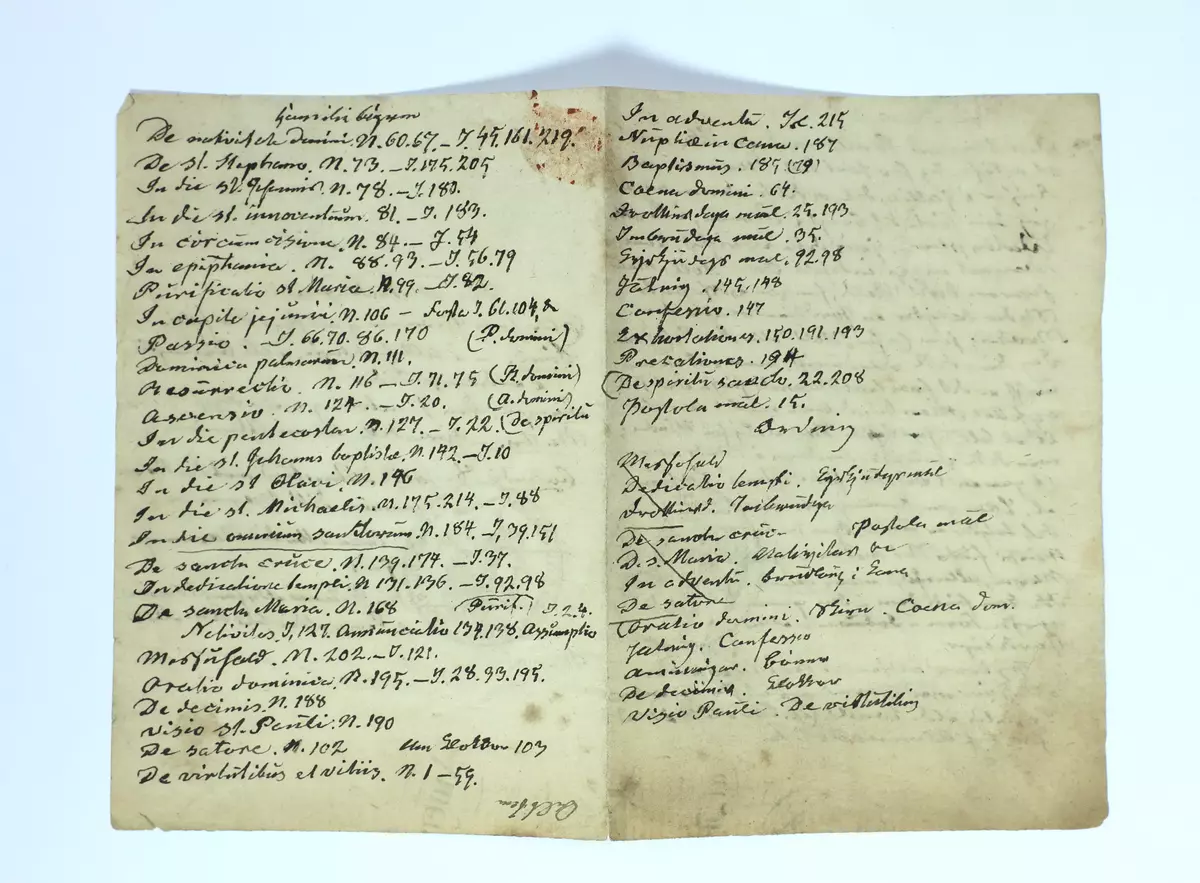 De nativitate domini. N. 60.67. – I. 45.161.219.
De st. Stephano. N. 73. – I. 175.205
In die st. Johannis. N. 78. – I. 180.
In die st. innocentium. 81. – I. 183.
In circumcisione. N. 84. – I. 54
In epiphania. N. 88.93. – I. 56.79
Purificatio st Maria. N. 99. – I. 82.
In capite jejunii. N. 106 – Fosta I. 61.104,
Passio. – I. 66.70.86.170 (P. domini)
Dominica palmarum. N. 111.
Resurrectio. N. 116 – I. 71.75 (R. domini)
Ascensio. N. 124. – I. 20. (A. domini)
In die pentecostar. N. 127. – I. 22. (De spiritu
In die st. Johannis baptistæ. N. 142. – I. 10
In die st Olavi. N. 146
In die st. Michaelis. N. 175.214. – I. 88
In die omnium sanctorum. N. 184. – I, 39.151
De sancta cruce. N. 139.174. – I. 37.
In dedicatione templi. N 131.136. – I. 92.98
De sancta Maria. N. 168 (Purif.) I. 24.
Nativitas. I, 127. Annunciatio 134.138. Assumptio
Messufald. N. 202. – I. 121.
Oratio dominica. N. 195. – I. 28.33.195.
De decimis. N. 188
Visio st. Pauli. N. 190
De satore. N. 102 103
De virtutibus et vitiis. N. 1 – 59.
In adventu. Isl. 215
Nuptiæ in Cana. 187
Baptismus. 185 (79)
Coena domini. 64.
Drottinsdaga mál. 25.193
Imbrudaga mál. 35.
Kyrkjudags mál. 92.98
Játning. 145.148
Confessio. 147
Exhortationes. 150.191.193
Precationes. 194
(De spiritu sancto. 22.208
Postola mál. 15.
Ordning
Messufald
Dedicatio templi. Kyrkjudagsmál
Drottinsd. Imbrudaga
De sancta cruce Postola mál
D. s. Maria.
In adventu. i Cana
De satore
Oratio domini. Coena dom.
Játning. Confessio
De decimis.
Visio Pauli. De virtutibus